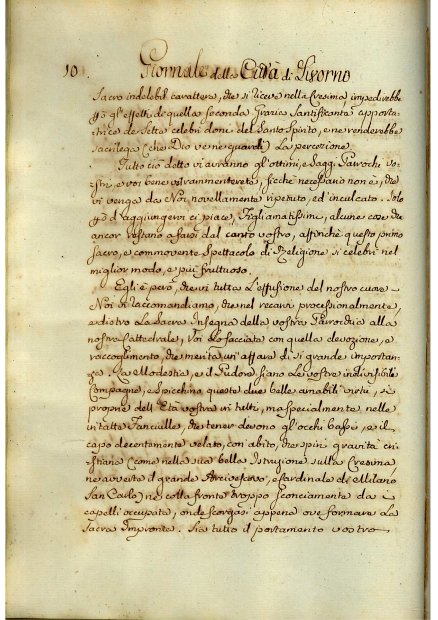 10. Giornale della Città di Livorno
Sacro indelebil carattere, che si riceve nella Cresima, impedirebbe
gl'effetti di quella seconda Grazia Santificante apporta-
trice de Sette celebri doni del Santo Spirito, e ne renderebbe
sacrilega (che Dio ve ne guardi) La percezione.
Tutto ciò detto vi avranno gl'ottimi, e Saggi Parrochi vo-
stri, e voi bene vi rammenterete, sicchè necessario non è, che
vi venga da Noi novellamente ripetuto, ed inculcato. Solo
d'aggiungervi ci piace, Figli amatissimi, alcune cose che
ancor restano a farsi dal canto vostro, affinchè questo primo
Sacro, e commovente Spettacolo di Religione si celebri nel
miglior modo, e più fruttuoso.
Egli è però, che in tutta L'effusione del nostro cuore
Noi vi raccomandiamo, che nel recarvi processionalmente,
e dietro La Sacra Insegna della vostra Parrochia alla
nostra Cattedrale, Voi Lo facciate con quella devozione, e
raccoglimento, che merita un'affare di sì grande importan-
za. La Modestia, e il Pudore siano Le vostre indivisibili
Compagne, e Spicchino queste due belle amabili virtù, sì
proprie dell'Età vostra in tutti, ma specialmente nelle
intatte Fanciulle, che tener devono gl'occhi bassi, e il
capo decentemente velato, con abito, che spiri gravità cri-
stiana (come nella sua bella Istruzione sulla Cresima
ne avverte il grande Arcivescovo, e Cardinale di Milano
San Carlo) nè colla fronte troppo sconciamente da i
capelli occupata, onde scorgasi appena ove formare La
Sacra Impronta. Sia tutto il portamento vostro